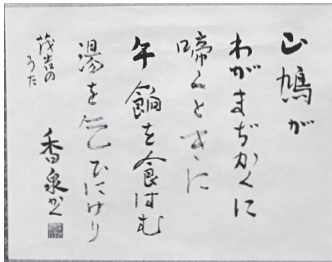 山鳩が
わがまぢかくに
啼くときに
午餉を食はむ
湯を乞ひにけり
茂吉の
うた
香泉かく